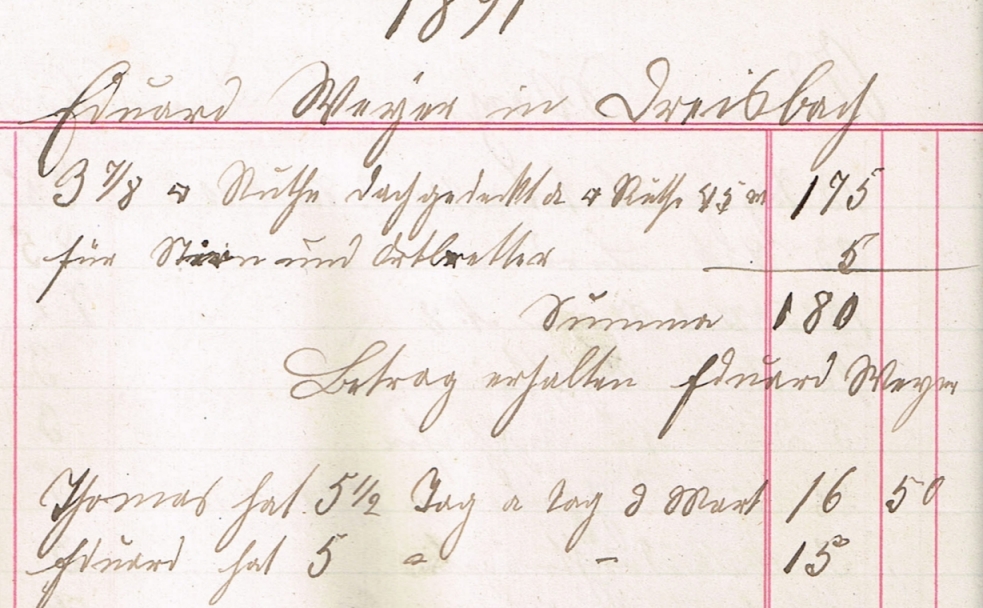 1891
Eduard Weyer in Dreisbach
3 7/8 □ Ruthe dachgedeckt a □ Ruthe 45 M 175
für Stirn und Ortbretter 5
Summa 180
Betrag erhalten Eduard Weyer
Thomas hat 5 1/2 Tag a Tag 3 Mark 16 50
Eduard hat 5 " - 15